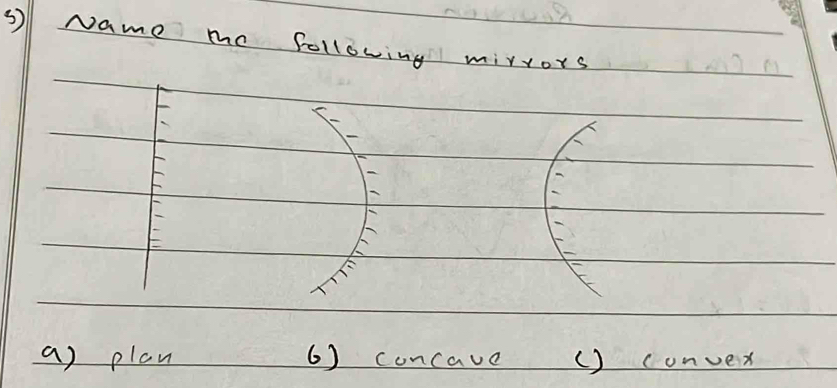 3) Name the following mirrors
a) plan b) concave c) convex